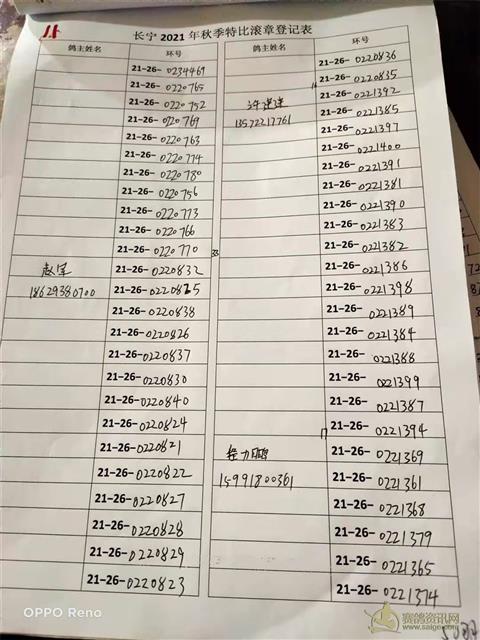 长宁 2021 年秋季特比滚章登记表
鸽主姓名 环号
21-26-0234469
21-26-0220765
21-26-0220752
21-26-0220769
21-26-0220763
21-26-0220774
21-26-0220780
21-26-0220756
21-26-0220773
21-26-0220766
21-26-0220770
赵军 21-26-0220832
18629380700 21-26-0220825
21-26-0220838
21-26-0220826
21-26-0220837
21-26-0220830
21-26-0220840
21-26-0220824
21-26-0220821
21-26-0220822
21-26-0220827
21-26-0220828
21-26-0220829
21-26-0220823
33
鸽主姓名 环号
21-26-0220836
21-26-0220835
21-26-0221392
13572217761 21-26-0221385
21-26-0221397
21-26-0221400
21-26-0221391
21-26-0221381
21-26-0221390
21-26-0221383
21-26-0221382
21-26-0221386
21-26-0221398
21-26-0221389
21-26-0221384
21-26-0221388
21-26-0221399
21-26-0221387
21-26-0221394
17
21-26-0221369
15991800361 21-26-0221361
21-26-0221368
21-26-0221379
21-26-0221365
21-26-0221374
OPPO Reno
赛鸽资讯网
www.saige.com